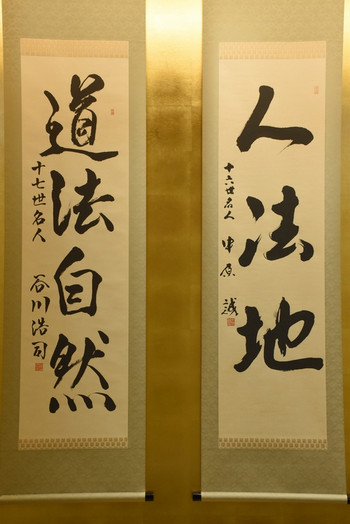 人法地
十六世名人 中原 誠
道法自然
十七世名人 谷川浩司